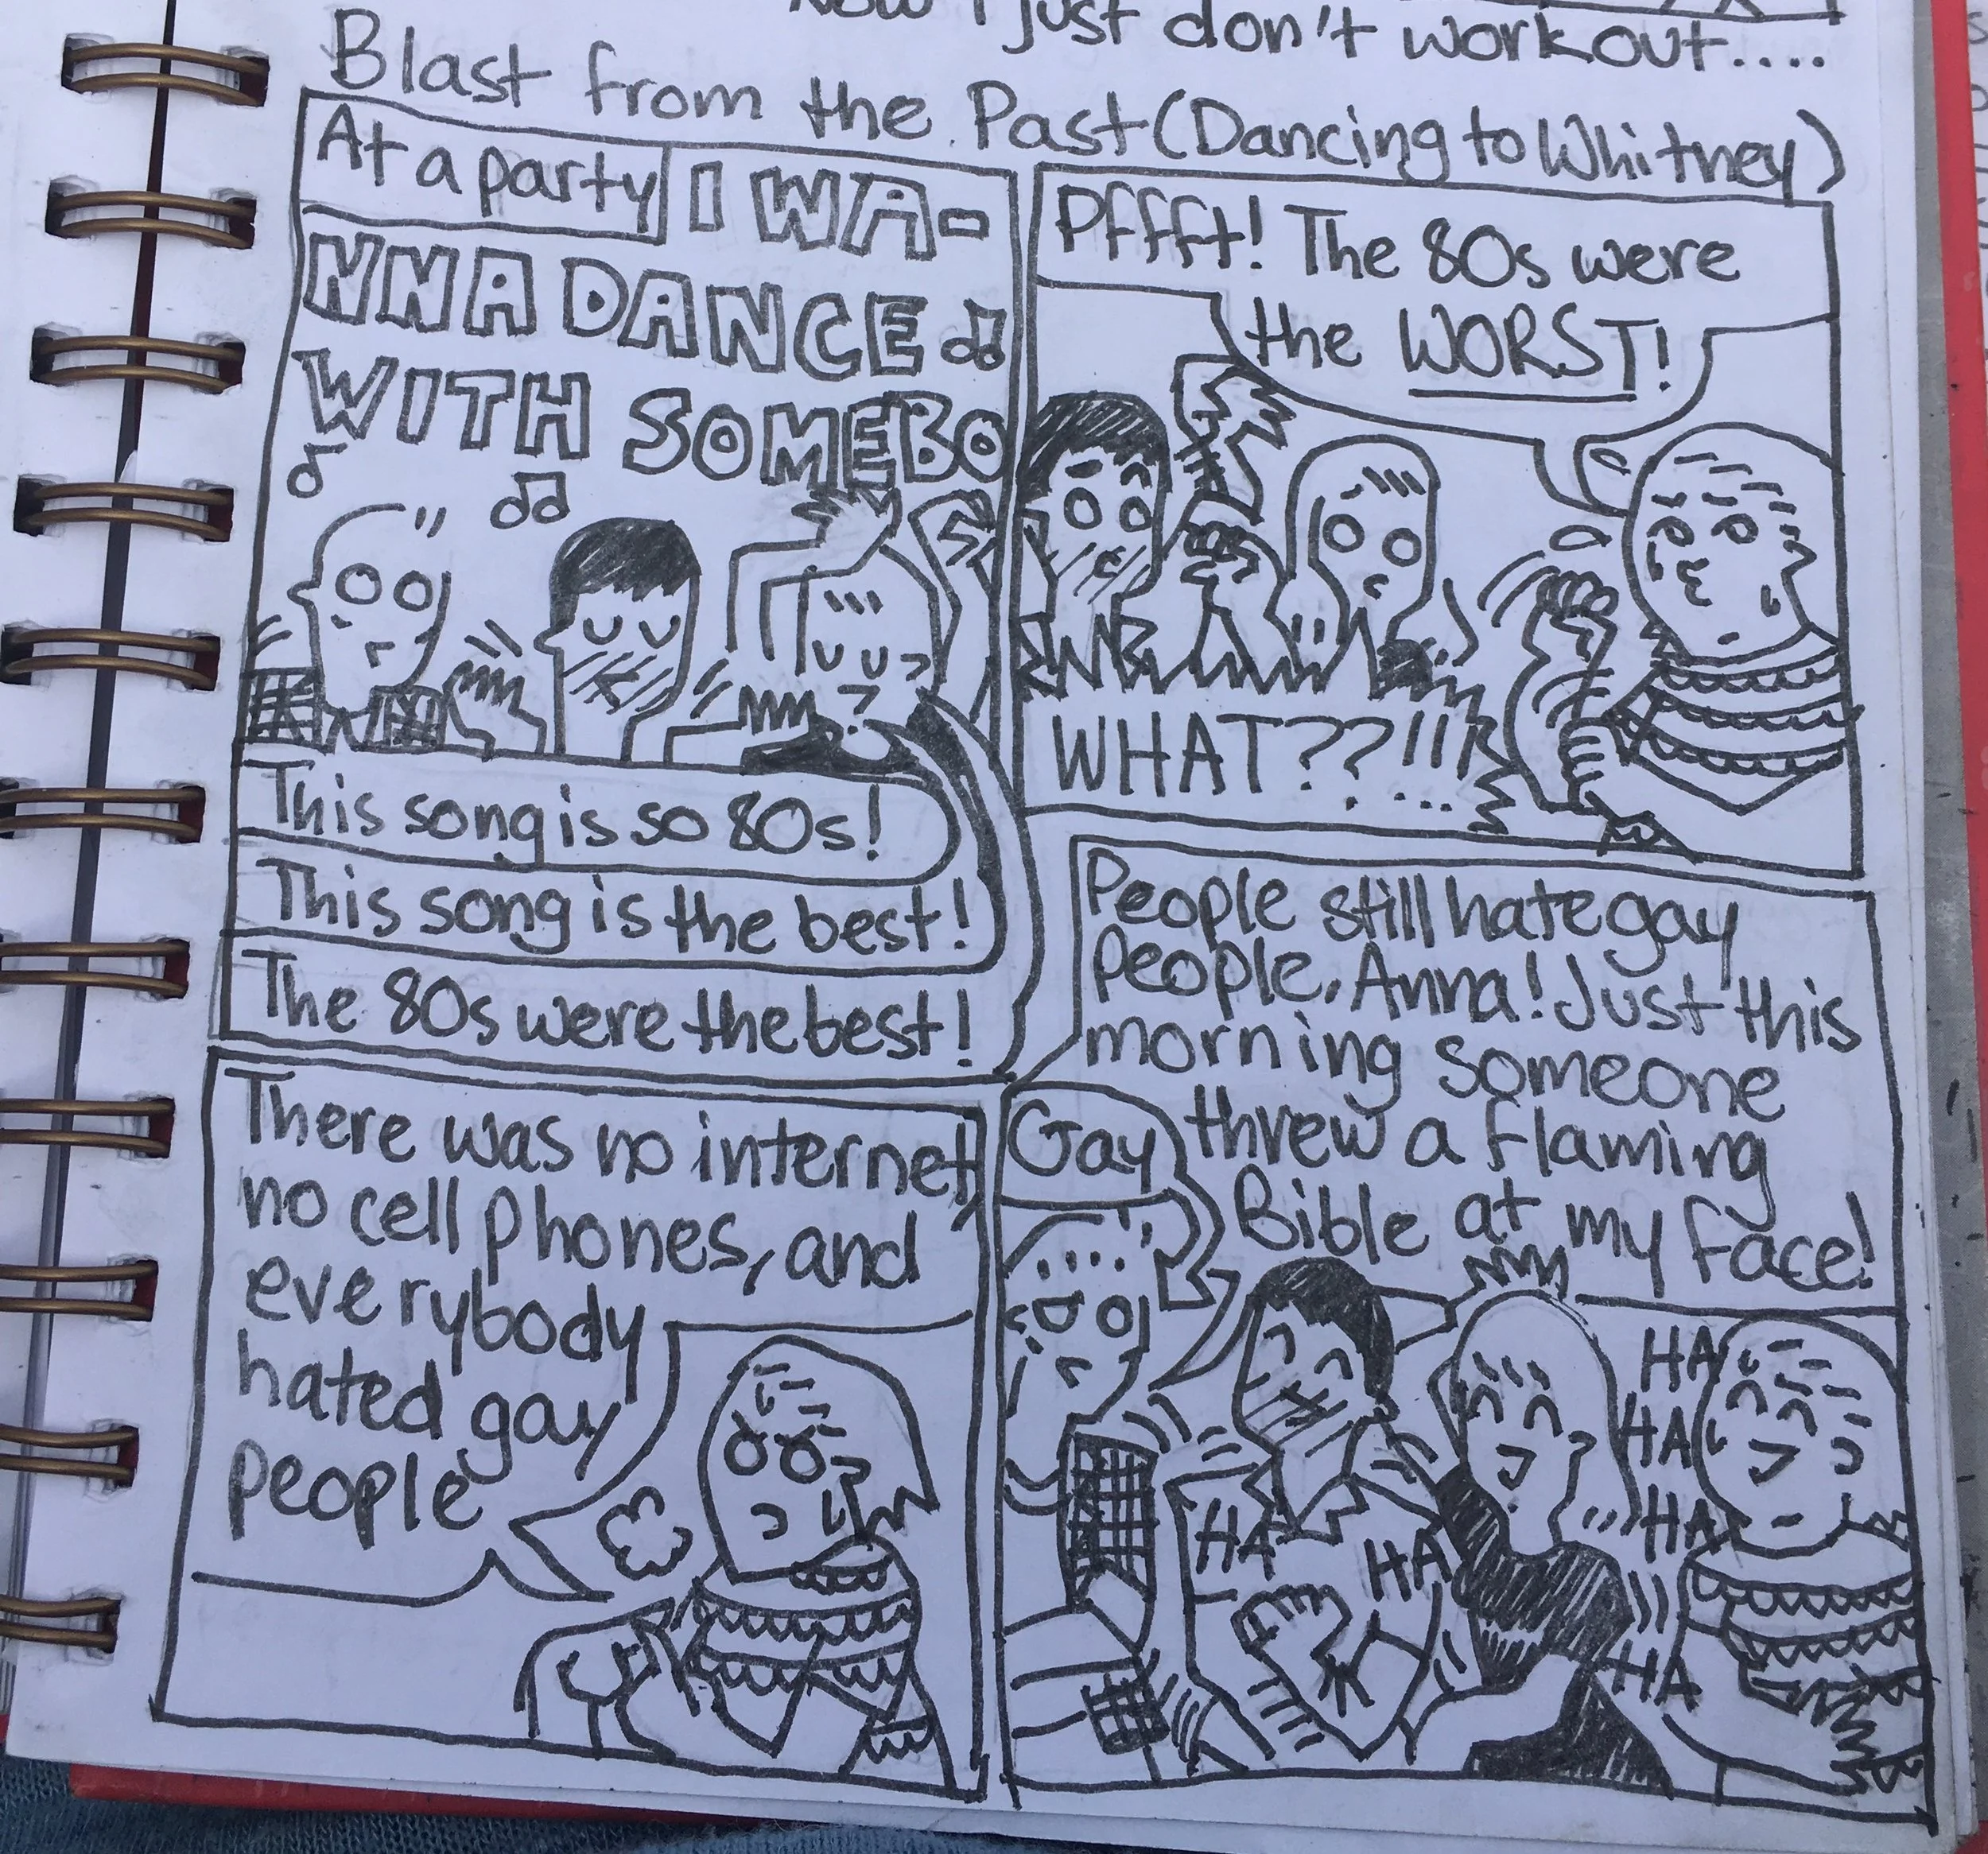 Now I just don't workout....
Blast from the Past (Dancing to Whitney)
At a party
I WA-
NNA DANCE
WITH SOMEBO
This song is so 80s!
This song is the best!
The 80s were the best!
Pffft! The 80s were
the WORST!
WHAT??!!
...
There was no internet,
no cell phones, and
everybody
hated gay
people
People still hate gay
people, Anna! Just this
morning someone
threw a flaming
Bible at my face!
Gay
HA
HA
HA
HA
HA
HA